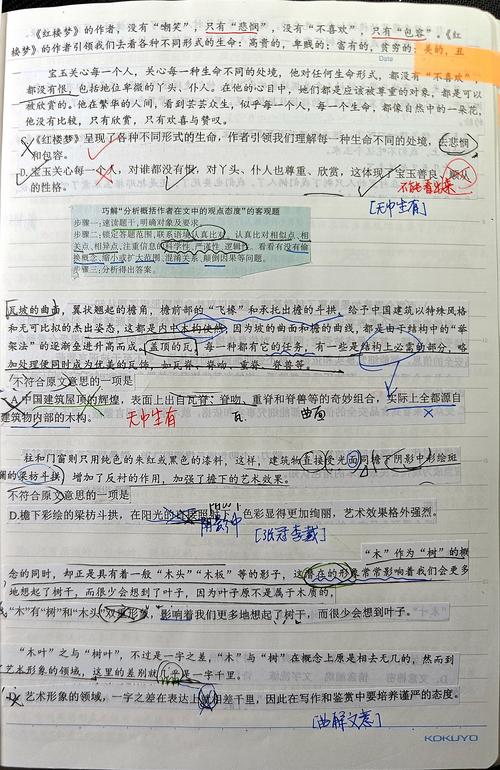 《红楼梦》的作者，没有“嘲笑”，只有“悲悯”，没有“不喜欢”，只有“包容”。《红
楼梦》的作者引领我们去看各种不同形式的生命：高贵的，卑贱的；富有的，贫穷的；美的，丑
Date
宝玉关心每一个人，关心每一种生命不同的处境，他对任何生命形式，都没有“不喜欢”，
都没有恨，包括地位卑微的丫头、仆人。在他的心目中，她们都是应该被尊重的对象，都是可以
被欣赏的。他在繁华的人间，看到芸芸众生，似乎每一个人，每一个生命，都像自然中的一朵花，
他没有比较，只有欣赏，只有欢喜与赞叹。
《红楼梦》呈现了各种不同形式的生命，作者引领我们理解每一种生命不同的处境，去悲悯
和包容。
D.宝玉关心每一个人，对谁都没有恨，对丫头、仆人也尊重、欣赏，这体现了宝玉善良、顺从
的性格。
不能看出来
[无中生有]
巧解“分析概括作者在文中的观点态度”的客观题
步骤一:速读题干,明确对象及要求。
步骤二:锁定答题范围,联系语境,认真比对。认真比对相似点、相
关点、相异点,注重信息的科学性、严谨性、逻辑性,看看有没有偷
换概念、缩小或扩大范围、混淆关系、颠倒因果等问题。
步骤三:分析得出答案。
瓦坡的曲面，翼状翘起的檐角，檐前部的“飞椽”和承托出檐的斗拱，给予中国建筑以特殊风格
和无可比拟的杰出姿态，这都是内中木构使然，因为坡的曲面和檐的曲线，都是由于结构中的“举
架法”的逐渐垒进升高而成。盖顶的瓦，每一种都有它的任务，有一些是结构上必需的部分，略
加处理便同时成为优美的瓦饰，如瓦脊、脊吻、重脊、脊兽等。
不符合原文意思的一项是
A.中国建筑屋顶的辉煌，表面上出自瓦脊、脊吻、重脊和脊兽等的奇妙组合，实际上全都源自
建筑物内部的木构。
无中生有
瓦.
曲面
柱和门窗则只用纯色的朱红或黑色的漆料，这样，建筑物直接受光面同檐下阴影中彩绘斑
斓的梁枋斗拱，增加了反衬的作用，加强了檐下的艺术效果。
不符合原文意思的一项是
D.檐下彩绘的梁枋斗拱，在阳光的直接照耀下，色彩显得更加绚丽，艺术效果格外强烈。
阴影中
[张冠李戴]
“木”作为“树”的概
念的同时，却正是具有着一般“木头”“木板”等的影子，这潜在的形象常常影响着我们会更多
地想起了树干，而很少会想到了叶子，因为叶子原不是属于木质的，
“木”有“树”和“木头”双重形象，影响着我们更多地想起了树干，而很少会想到叶子。
“木叶”之与“树叶”，不过是一字之差，“木”与“树”在概念上原是相去无几的，然而到
了艺术形象的领域，这里的差别就几乎是一字千里。
艺术形象的领域，一字之差在表达上就相差千里，因此在写作和鉴赏中要培养严谨的态度。
[曲解文意]
KOKUYO